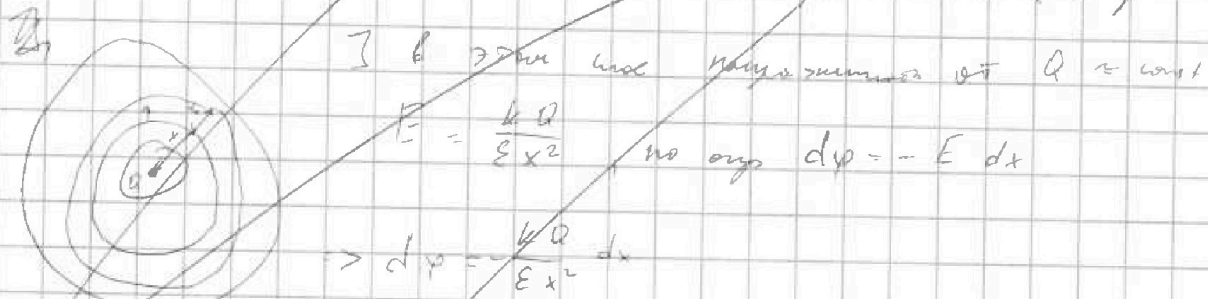 ] в этом слое напряженность от Q ≈ const
E = kQ / εx²
по опр dφ = - E dx
=> dφ = - kQ / εx² dx